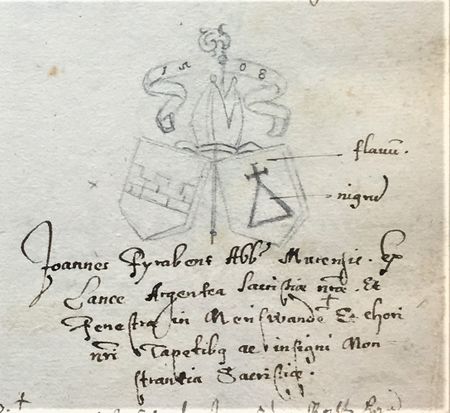 15 08
flavū.
nigrū
Joannes Fyrabent Abbs Murensis. ex
Lance Argentea Sacristiæ nræ. Et
Fenestra in Meriswande Et chori
nri Tapetibq ac insigni Mon
strantia Sacristiæ.